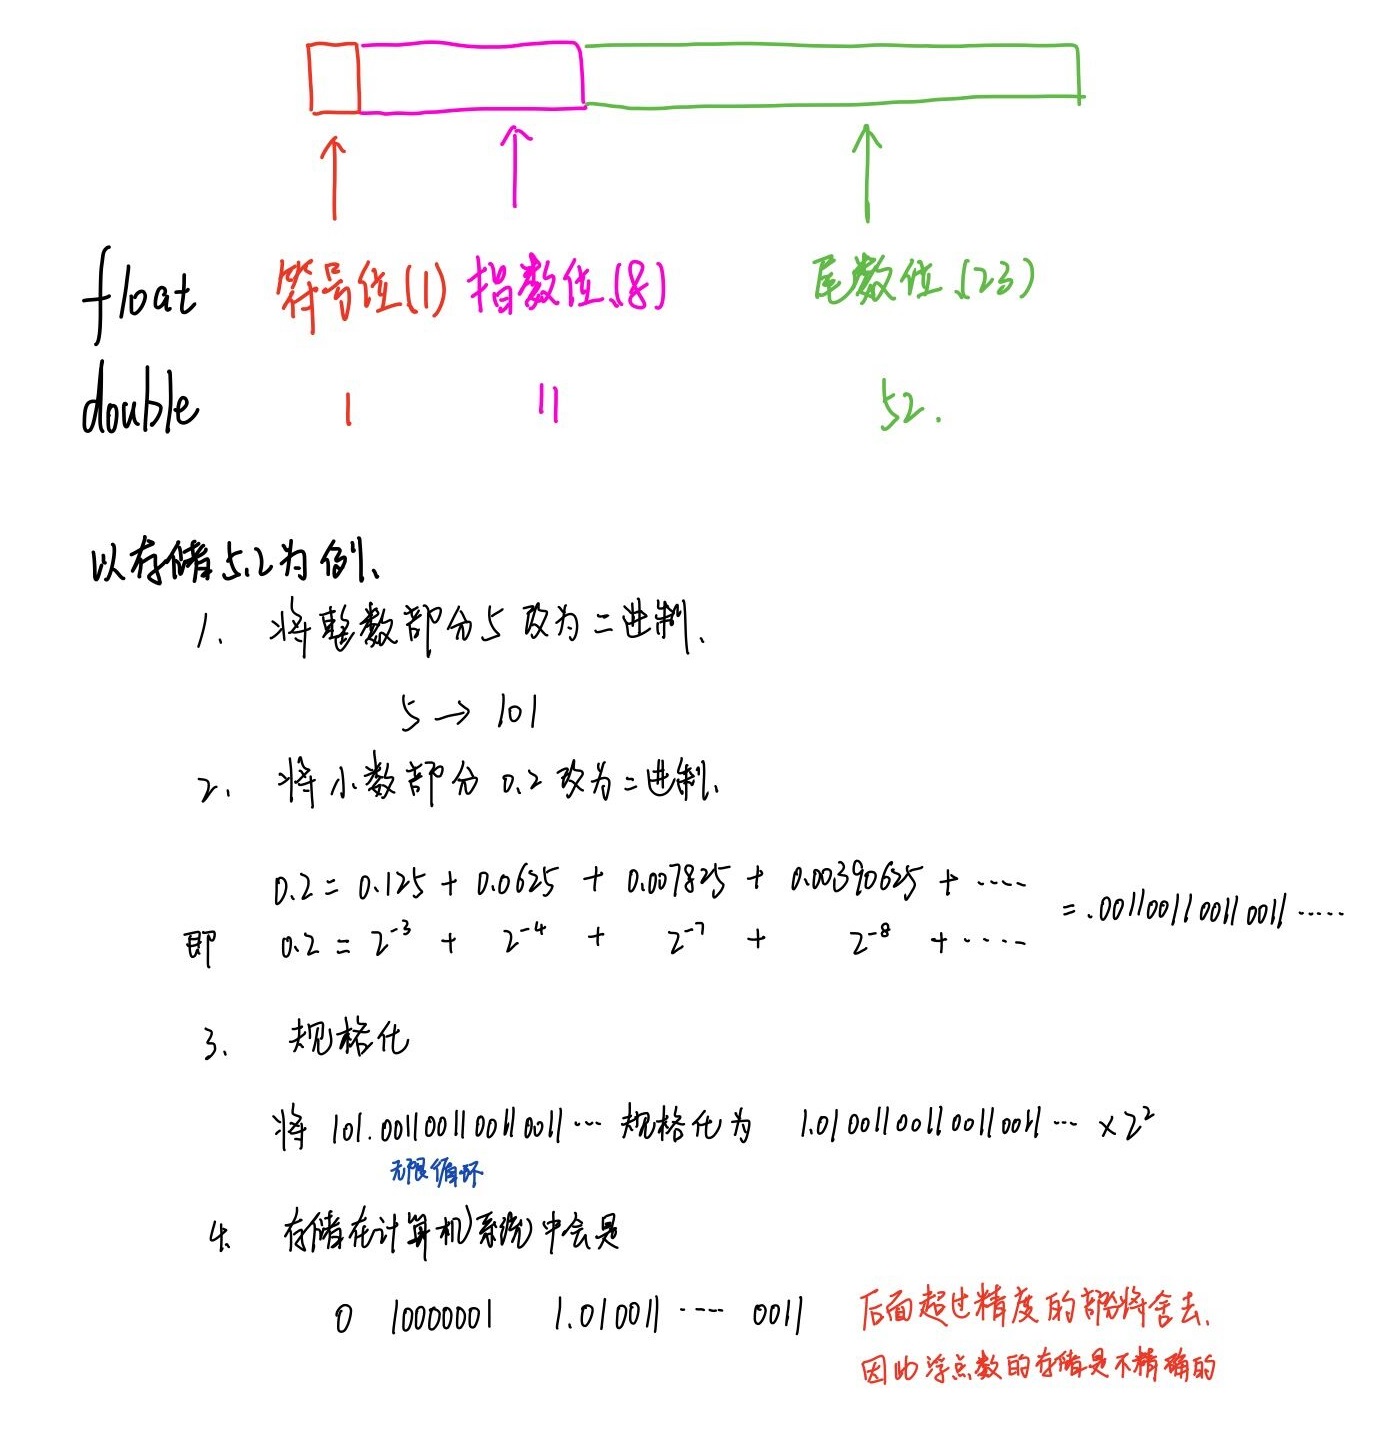 float 符号位(1) 指数位(8) 尾数位(23)
double 1 11 52.
以存储5.2为例、
1. 将整数部分5改为二进制、
5 → 101
2. 将小数部分 0.2 改为二进制、
0.2 = 0.125 + 0.0625 + 0.007825 + 0.00390625 + ····
= .0011001100110011 ·····
即 0.2 = 2⁻³ + 2⁻⁴ + 2⁻⁷ + 2⁻⁸ + ····
3. 规格化
将 101.0011001100110011 ··· 规格化为 1.010011001100110011 ··· ×2²
无限循环
4. 存储在计算机系统中会是
0 10000001 1.010011 ···· 0011 后面超过精度的部分将舍去.
因此浮点数的存储是不精确的